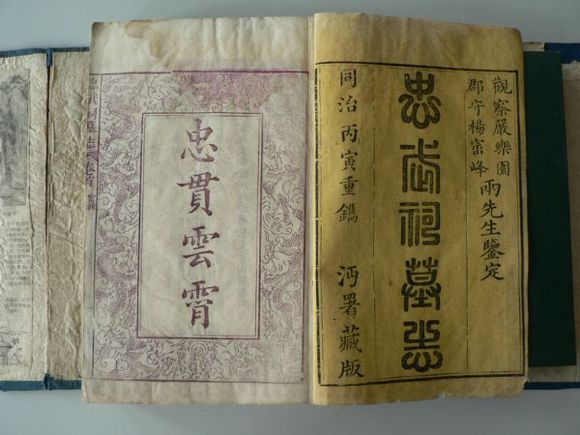 觀察嚴樂園
郡守楊富峰
兩先生鑒定
忠武祠墓志
同治丙寅重鐫 沔署藏版
忠貫雲霄